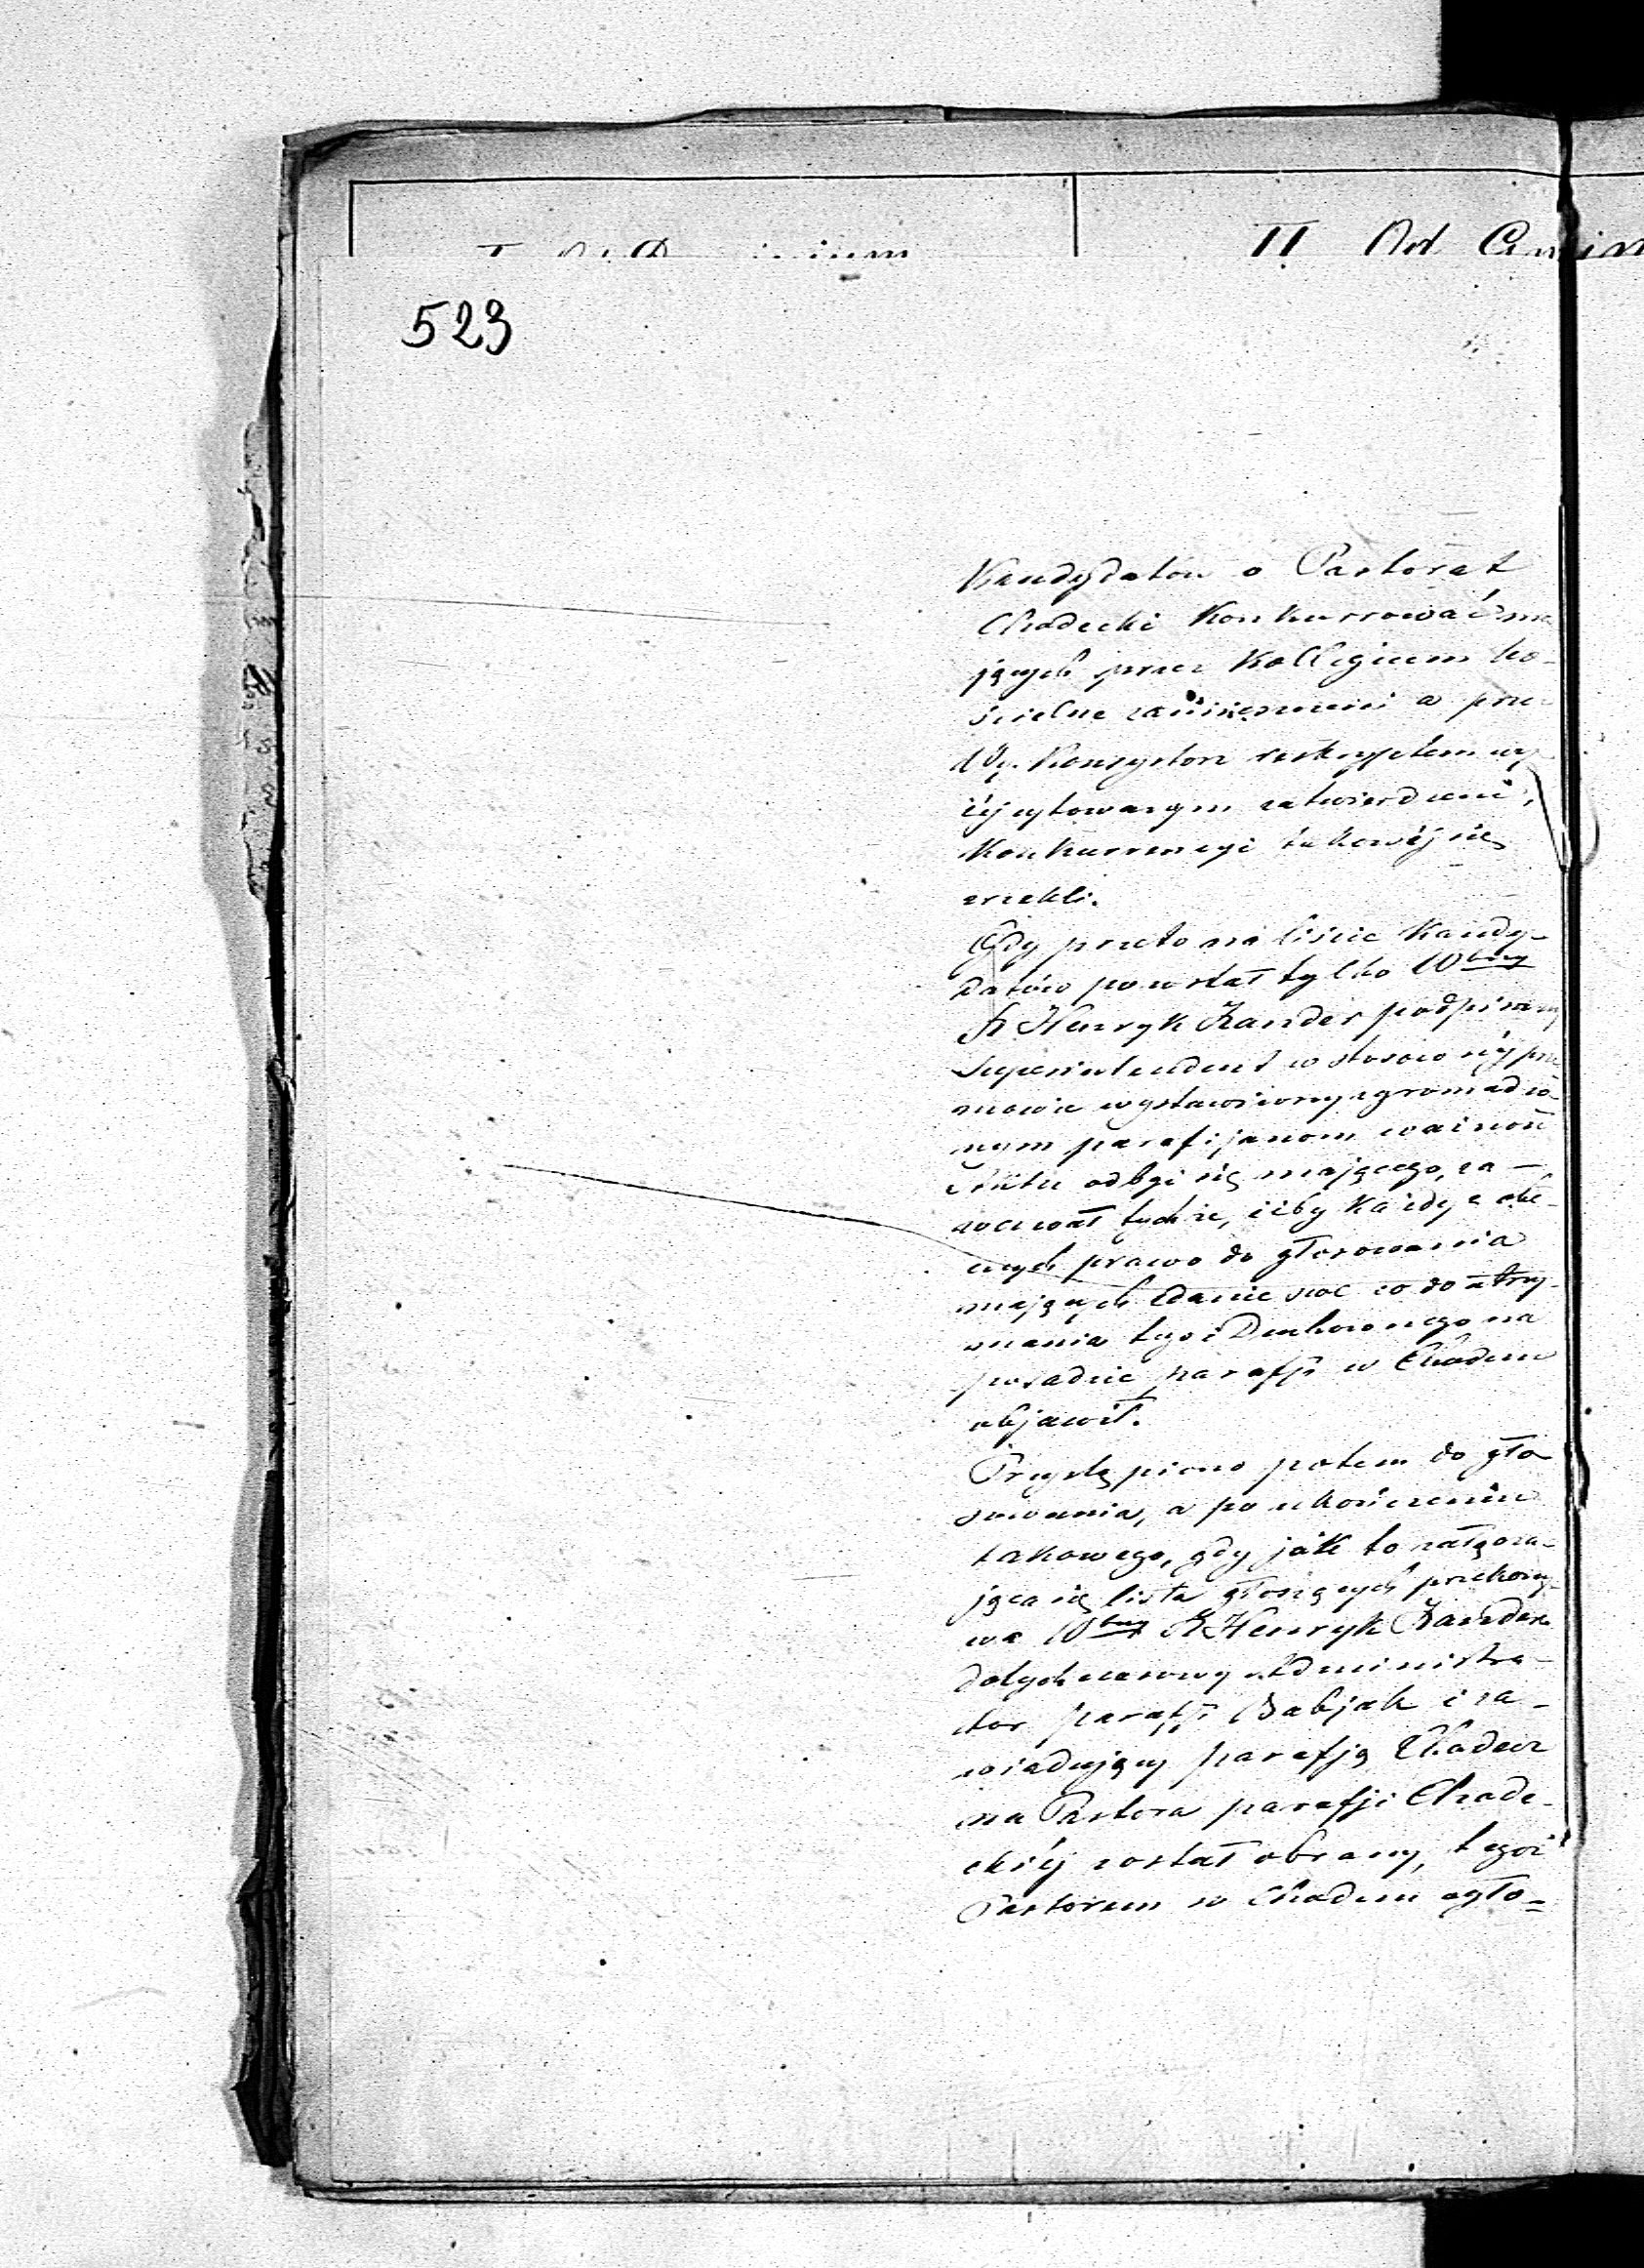 II Od Gmin
523
Kandydatów o Pastorat
Chodecki Konkurrować ma
jących przez Kollegium ko-
ścielne zaniesieni a prze
Wy. Konsystorz reskryptem wy
żéj cytowanym zatwierdzeni,
Konkurrencyi takowéj się
zrzekli.
Gdy przeto na liście Kandy-
datów pozostał tylko Wbny
X Henryk Zander podpisany
Superintendent w stosownéj prze
mowie wystawiwszy zgromadzo-
nym parafijanom ważność
Aktu odbyć się mającego, za-
wezwał tychże, iżby każdy z obe-
cnych prawo do głosowania
mających zdanie swe co do utrzy-
mania tegoż Duchownego na
posadzie parafji w Chodczu
objawił.
Przystąpiono potem do gło
sowania, a po ukończeniu
takowego, gdy jak to załącza-
jąca się lista głosujących przekony-
wa Wbny X Henryk Zander
dotychczasowy Administra-
tor parafji Babjak i za-
wiadujący parafją Chodecz
na Pastora parafji Chode-
ckiéj został obrany, tegoż
Pastorem w Chodczu ogło=